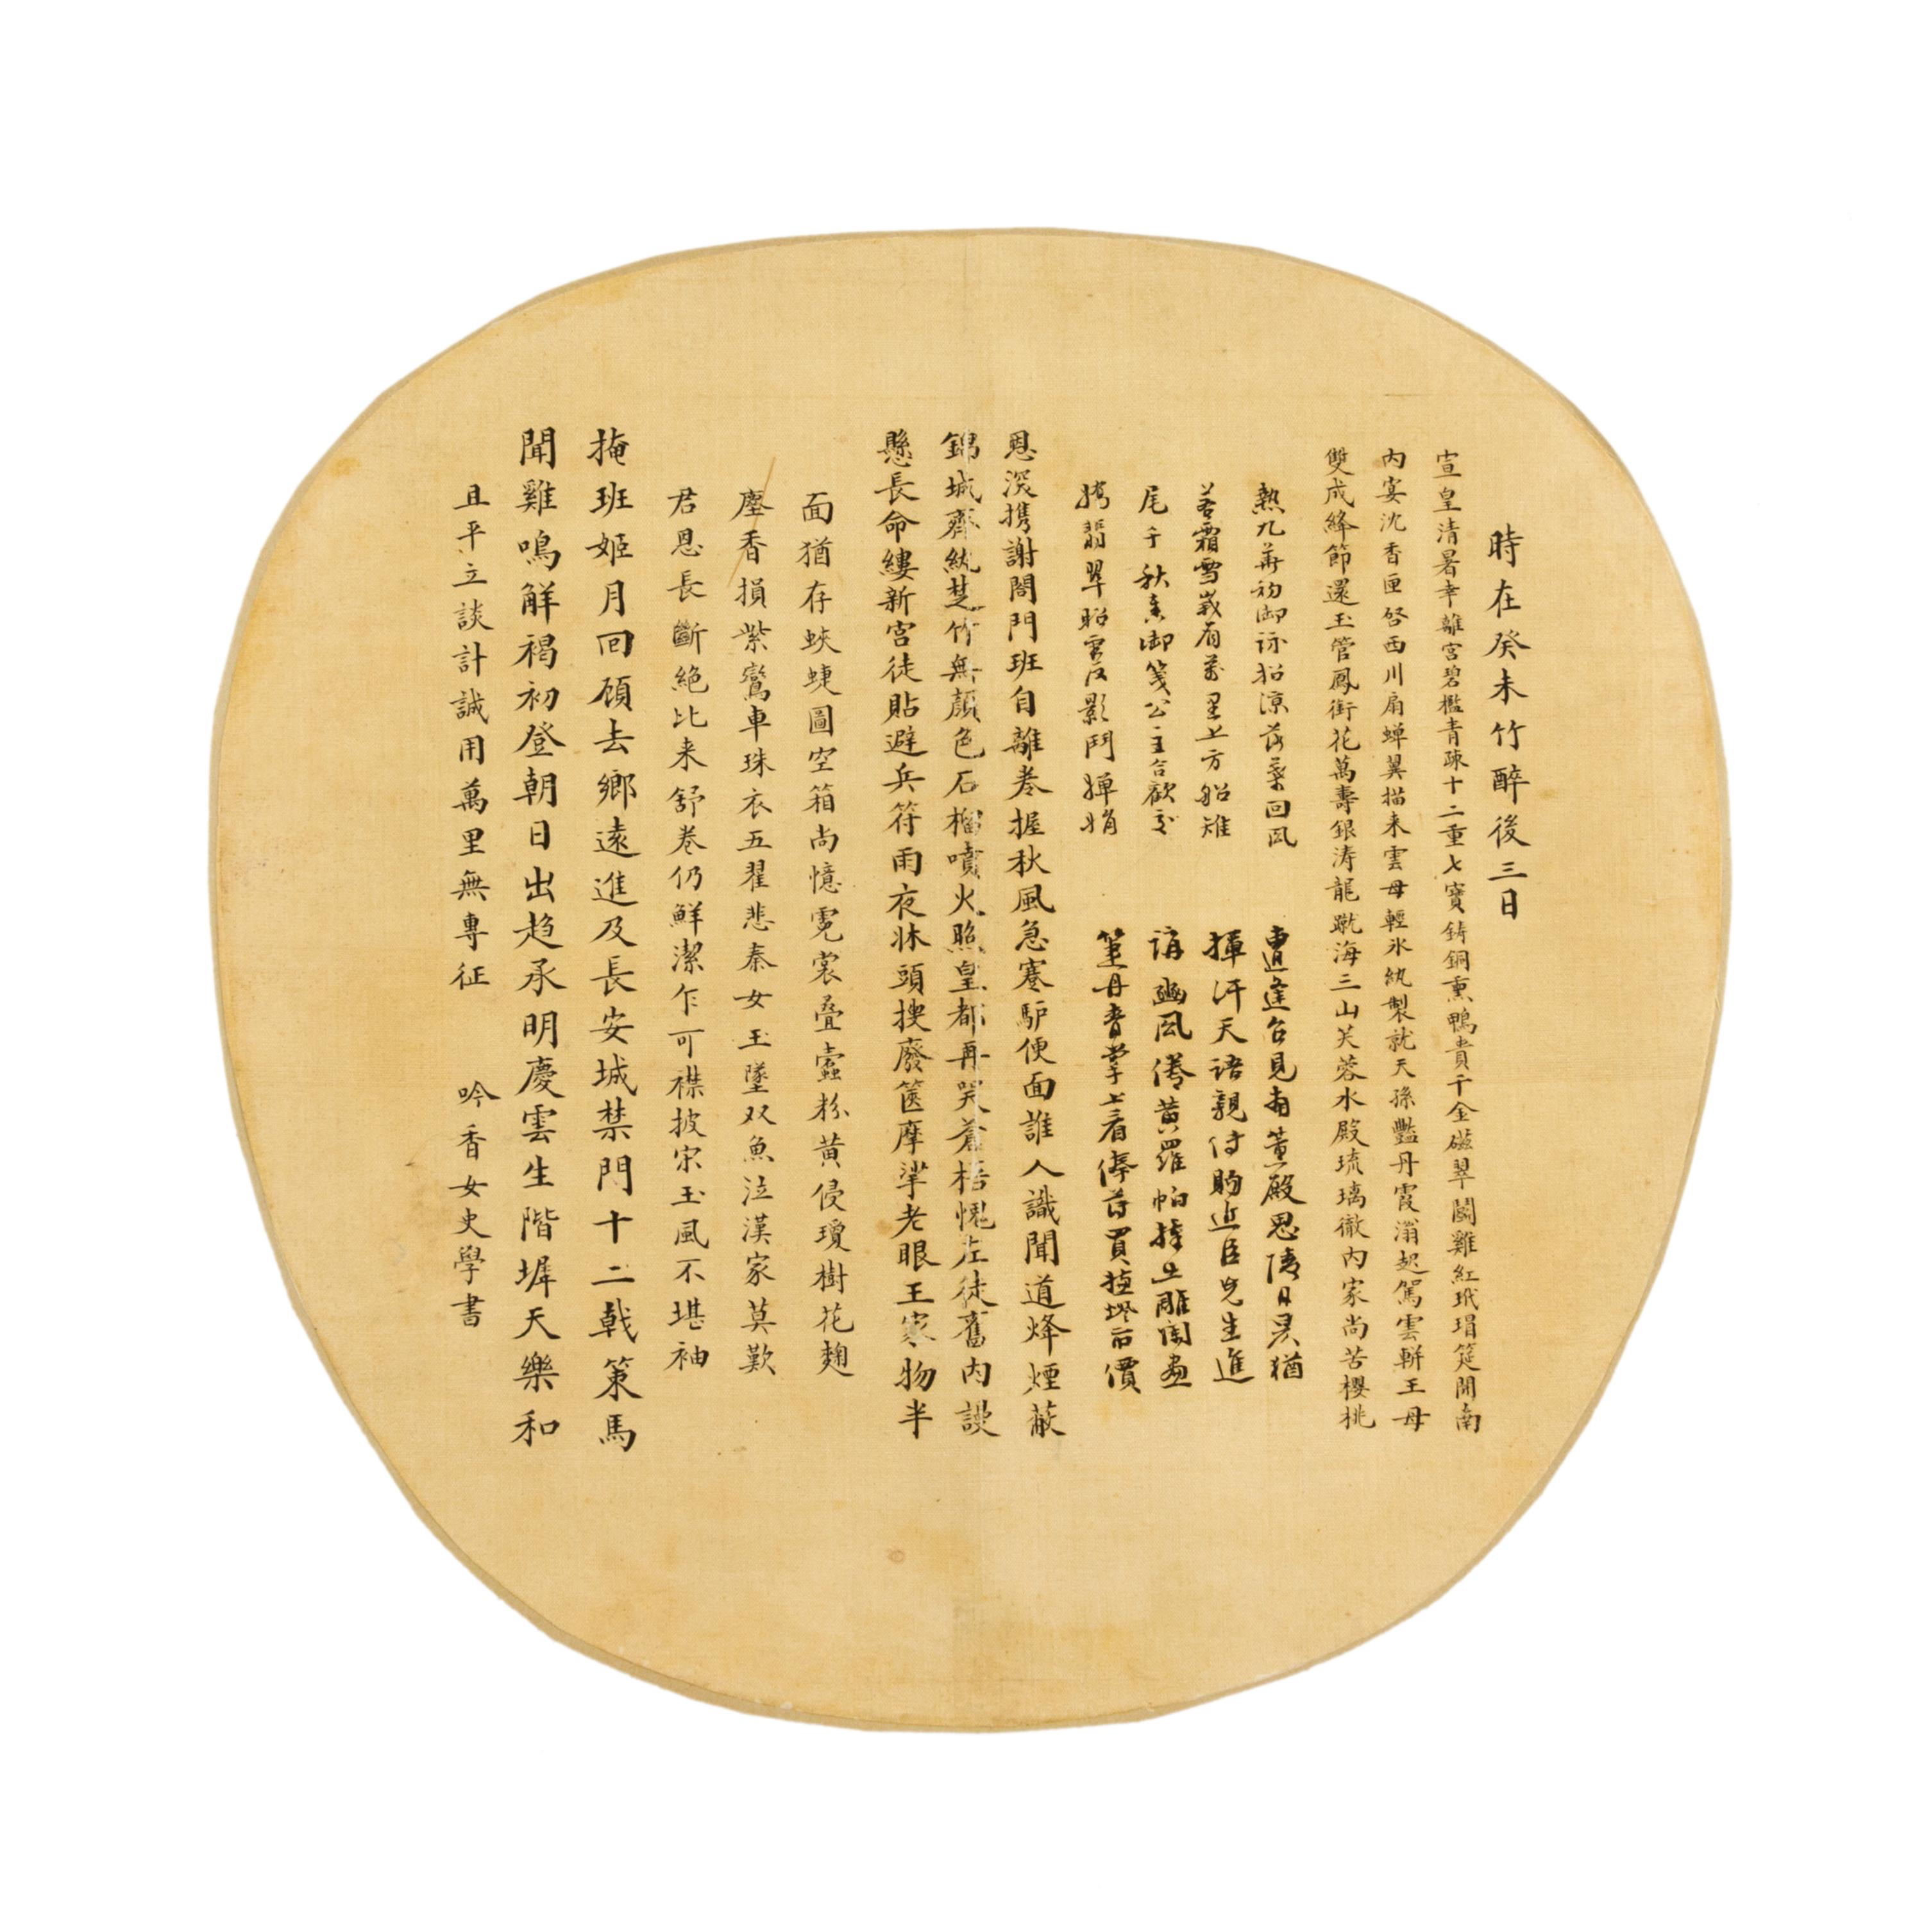 時在癸未竹醉後三日
宣皇清暑幸離宮碧檻青疎十二重七寶鑄銅熏鴨貴千金磁翠鬪雞紅玳瑁筵開南
內宴沈香匣啓西川扇蟬翼描来雲母輕氷紈製就天孫豔丹霞滃起駕雲軿王母
雙成絳節還玉管鳳銜花萬壽銀涛龍蹴海三山芙蓉水殿琉璃徹內家尚苦櫻桃
熱九華初御詠招涼落葉回風
若霜雪崴有萬里上方船雉
尾千秋御箋公主合歡
翡翠昭霞影鬥嬋娟
遭逢召見南薰殿思陵日昃猶
揮汗天語親侍近臣先生進
講豳風倦黃羅帕捧上雕闌畫
筆丹青掌上看俸買價
恩深携謝閤門班自離卷握秋風急蹇驴便面誰人識聞道烽煙蔽
錦城齊紈楚竹無顏色石榴噴火照皇都再哭蒼梧愧左徒舊內謾
懸長命縷新宮徒貼避兵符雨夜牀頭搜廢篋摩挲老眼王家物半
面猶存蛺蜨圖空箱尚憶霓裳疊蠹粉黃侵瓊樹花麹
塵香損紫鸞車珠衣五翟悲秦女玉墜双魚泣漢家莫歎
君恩長斷絶比来舒卷仍鮮潔乍可襟披宋玉風不堪袖
掩班姬月回頋去鄉遠進及長安城禁門十二戟策馬
聞雞鳴解褐初登朝日出趋承明慶雲生階墀天樂和
且平立談計誠用萬里無專征
吟香女史學書